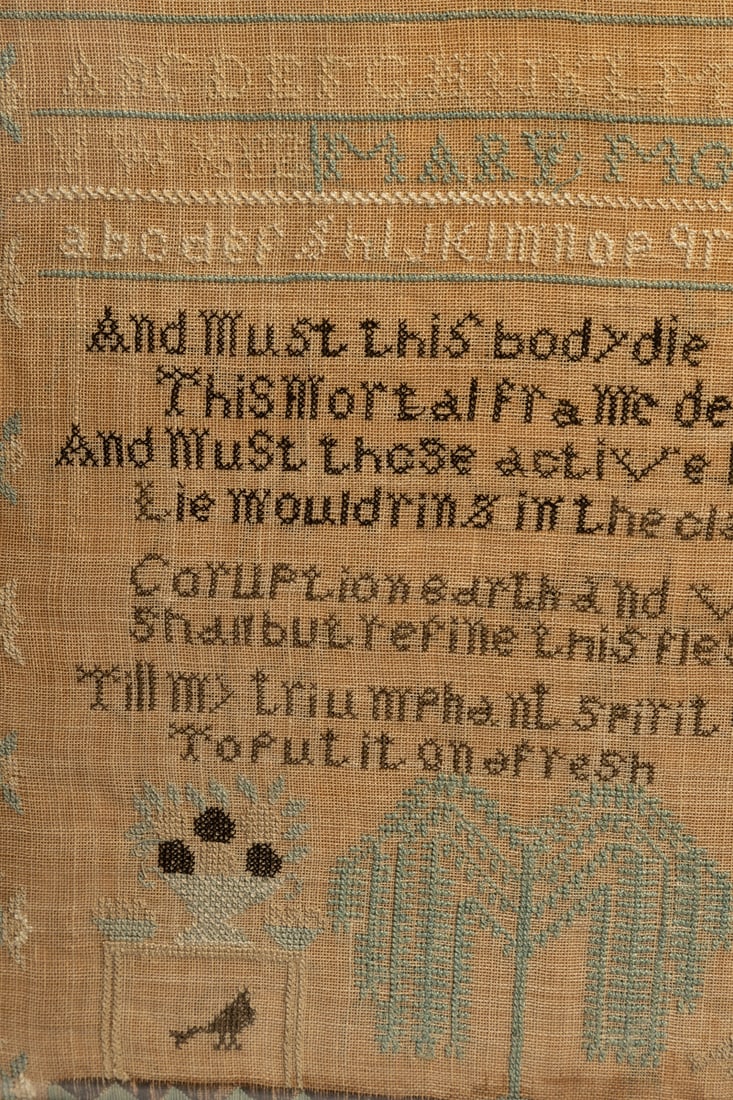 ABCDEFGHIJKLM
MARY MO
abcdefghijklmnopqr
And Must this body die
This Mortal frame de
And Must those active
Lie mouldring in the cla
Coruption earth and
Shall but refine this fles
Till my triumphant spirit
To put it on afresh